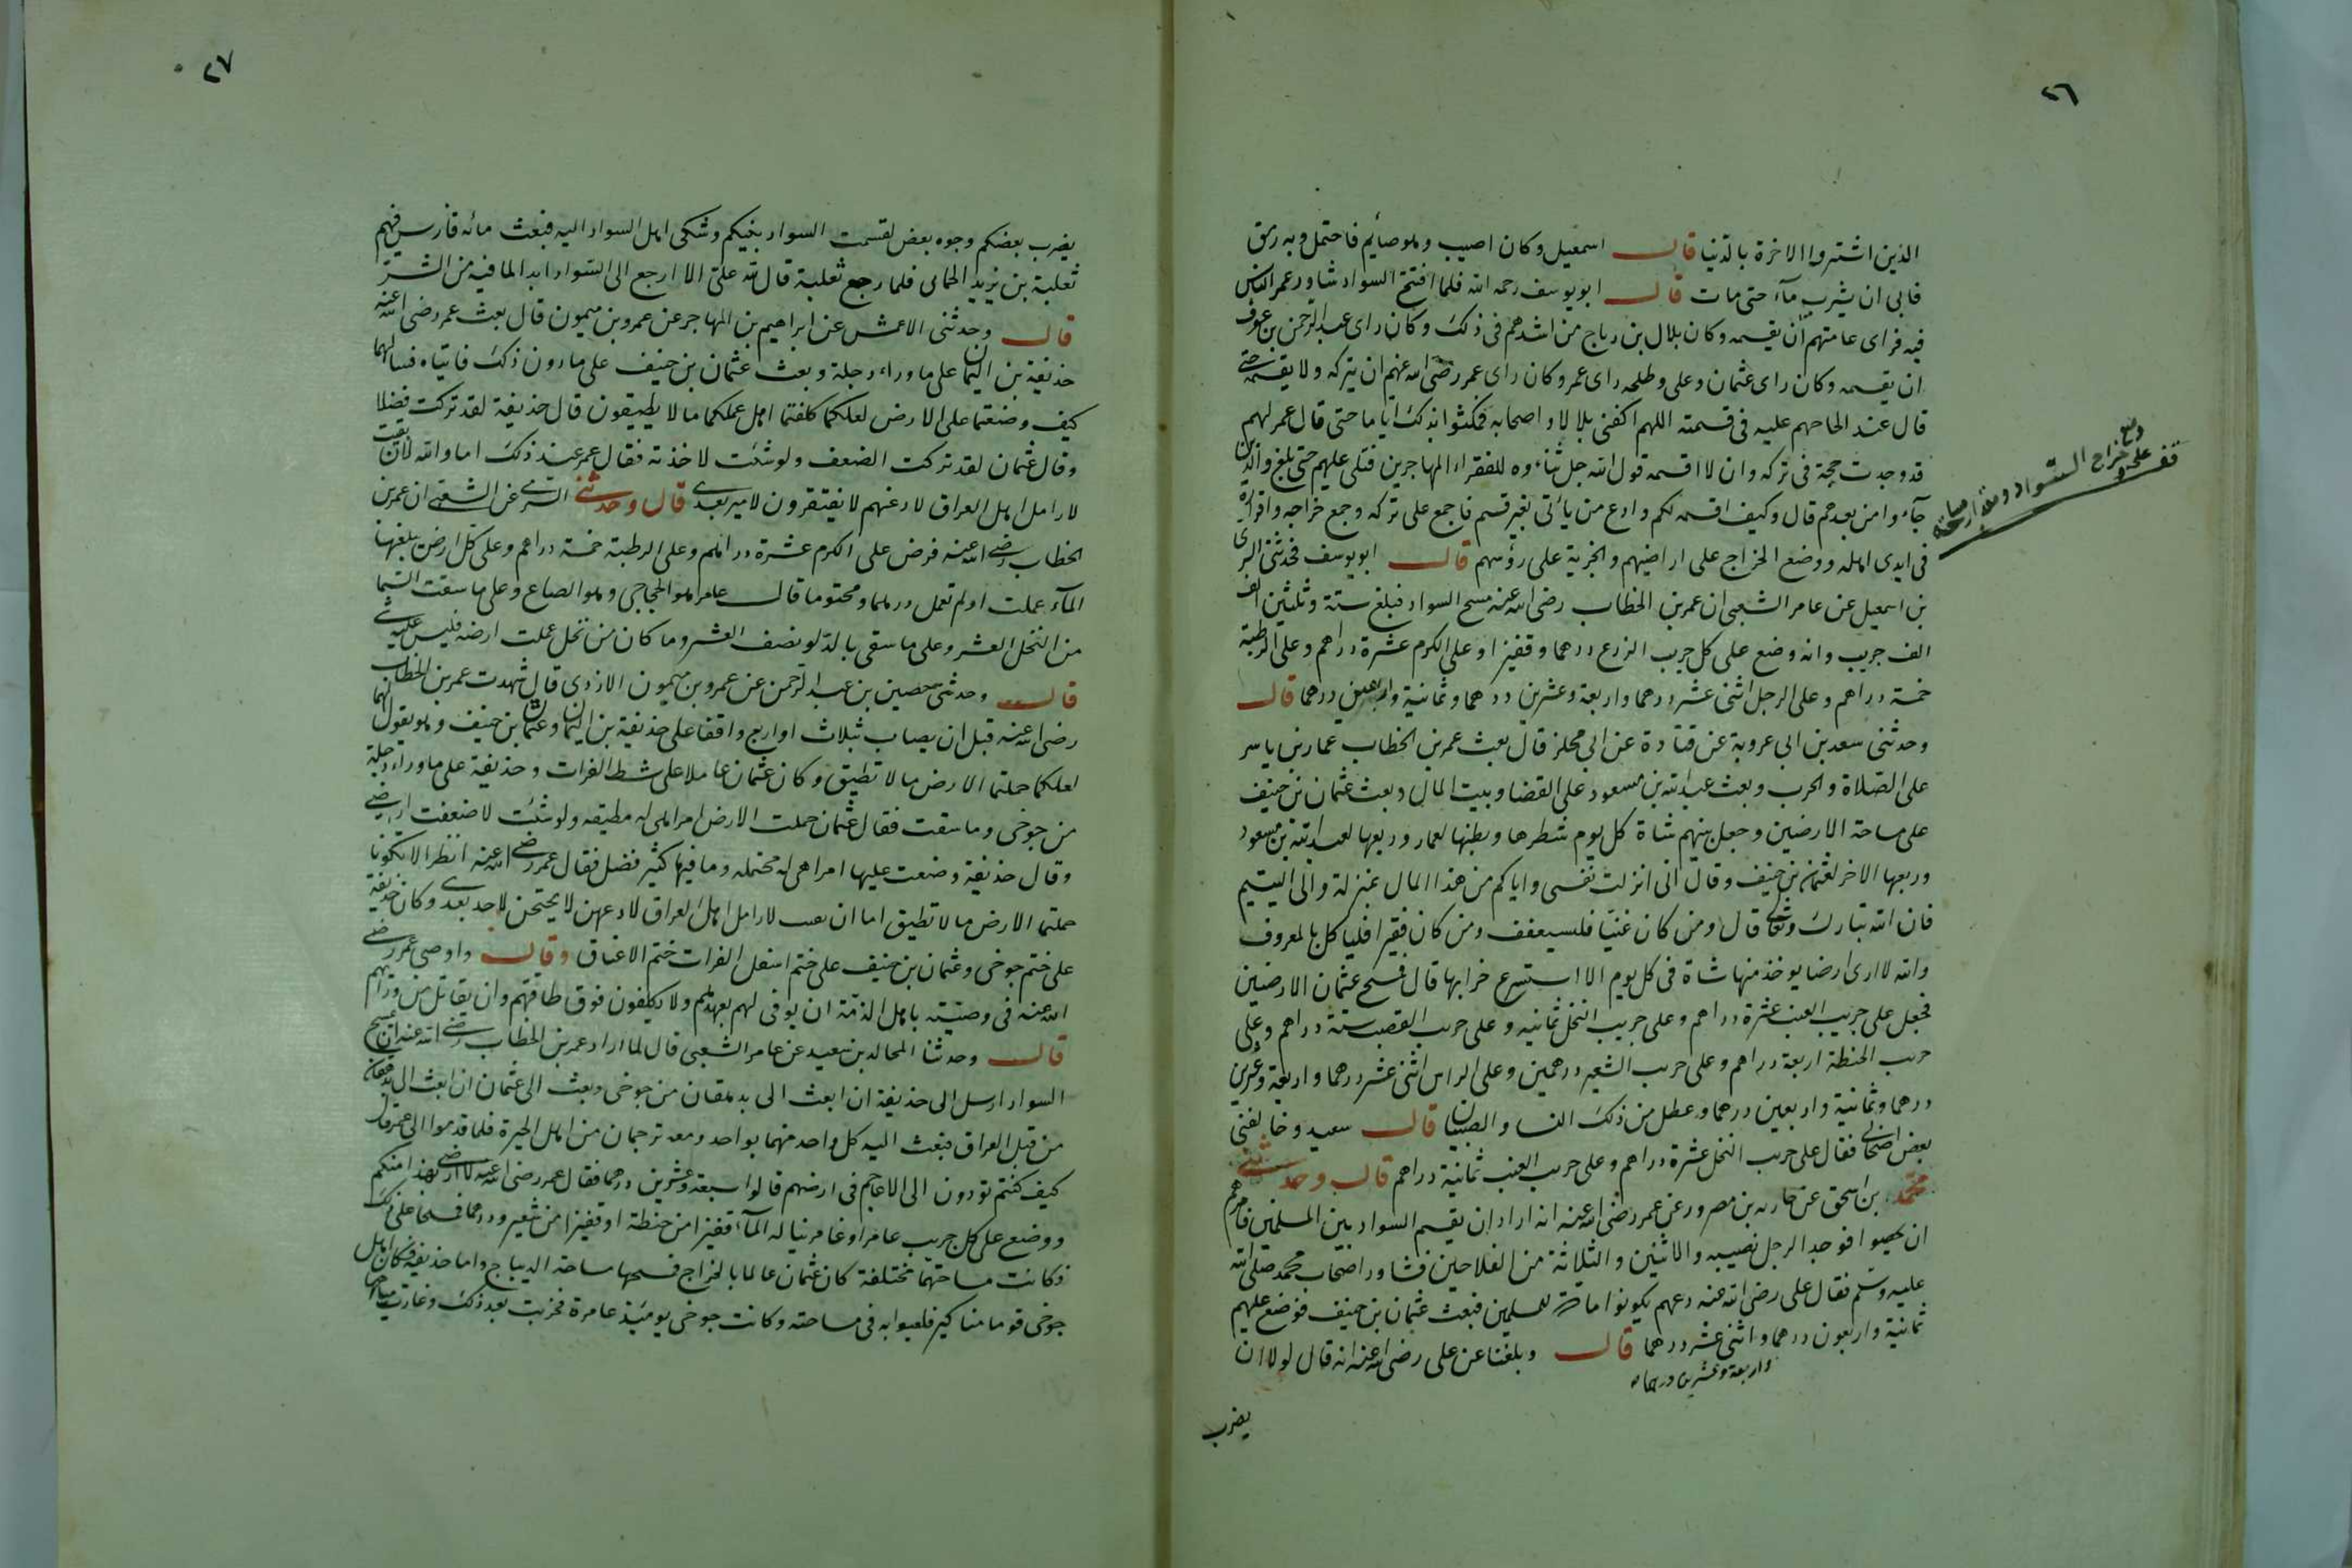 ٢٦
الذين اشتروا الاخرة بالدنيا قال اسمعيل وكان اصيب وهو صائم فاحتمل وبه رمق
فابى ان يشرب ماء حتى مات قال ابو يوسف رحمه الله فلما افتتح السواد شاور عمر الناس
فيه فراى عامتهم ان يقسمه وكان بلال بن رباح من اشدهم فى ذلك وكان راى عبد الرحمن بن عوف
ان يقسمه وكان راى عثمان وعلى وطلحه راى عمر وكان راى عمر رضى الله عنهم ان يتركه ولا يقسمه حتى
قال عند الحاحهم عليه فى قسمته اللهم اكفنى بلالا واصحابه فمكثوا بذلك اياما حتى قال عمر لهم
قد وجدت حجة فى تركه وان لا اقسمه قول الله جل ثناءوه للفقراء المهاجرين فتلى عليهم حتى بلغ والذين
جآءوا من بعدهم قال وكيف اقسمه لكم وادع من يأتى بغير قسم فاجمع على تركه وجمع خراجه واقراره
فى ايدى اهله ووضع الخراج على اراضيهم والجزية على رؤسهم قال ابو يوسف فحدثنى السرى
بن اسمعيل عن عامر الشعبى ان عمر بن الخطاب رضى الله عنه مسح السواد فبلغ ستة وثلثين الف
الف جريب وانه وضع على كل جريب الزرع درهما وقفيزا وعلى الكرم عشرة دراهم وعلى الرطبة
خمسة دراهم وعلى الرجل اثنى عشر درهما واربعة وعشرين درهما وثمانية واربعين درهما قال
وحدثنى سعد بن ابى عروبة عن قتادة عن ابى مجلز قال بعث عمر بن الخطاب عمار بن ياسر
على الصلاة والحرب وبعث عبد الله بن مسعود على القضا وبيت المال وبعث عثمان بن حنيف
على مساحة الارضين وجعل بينهم شاة كل يوم شطرها وبطنها لعمار وربعها لعبد الله بن مسعود
وربعها الاخر لعثمن بن حنيف وقال انى انزلت نفسى واياكم من هذا المال بمنزلة والى اليتيم
فان الله تبارك وتعالى قال ومن كان غنيا فليستعفف ومن كان فقيرا فلياكل بالمعروف
والله لا ارى ارضا يوخذ منها شاة فى كل يوم الا استسرع خرابها قال فمسح عثمان الارضين
فجعل على جريب العنب عشرة دراهم وعلى جريب النخل ثمانيه وعلى جريب القصب ستة دراهم وعلى
جريب الحنطة اربعة دراهم وعلى جريب الشعير درهمين وعلى الراس اثنى عشر درهما واربعة وعشرين
درهما وثمانية واربعين درهما وعطل من ذلك النسا والصبيان قال سعيد وخالفنى
بعض اصحابى فقال على جريب النخل عشرة دراهم وعلى جريب العنب ثمانية دراهم قال وحدثنى
محمد بن اسحق عن حارثه بن مضرور عن عمر رضى الله عنه انه اراد ان يقسم السواد بين المسلمين فامرهم
ان يحصوا فوجد الرجل نصيبه والاثنين والثلاثة من الفلاحين فشاور اصحاب محمد صلى الله
عليه وسلم فقال على رضى الله عنه دعهم يكونوا مادة للمسلمين فبعث عثمان بن حنيف فوضع عليهم
ثمانية واربعون درهما واثنى عشر درهما قال وبلغنا عن على رضى الله عنه انه قال لولا ان
واربعة وعشرين درهما
يضرب
وضع خراج السواد
٢٧
يضرب بعضكم وجوه بعض لقسمت السواد بينكم وشكى اهل السواد اليه فبعث مائه فارس فيهم
ثعلبة بن يزيد الحمانى فلما رجع ثعلبة قال لله على الا ارجع الى السواد ابدا لما فيه من الشر
قال وحدثنى الاعمش عن ابراهيم بن المهاجر عن عمرو بن ميمون قال بعث عمر رضى الله عنه
حذيفة بن اليمان على ما وراء دجلة وبعث عثمان بن حنيف على ما دون ذلك فاتياه فسالهما
كيف وضعتما على الارض لعلكما كلفتما اهل عملكما ما لا يطيقون قال حذيفة لقد تركت فضلا
وقال عثمان لقد تركت الضعف ولو شئت لاخذته فقال عمر عند ذلك اما والله لان بقيت
لارامل اهل العراق لادعنهم لا يفتقرون لامير بعدى قال وحدثنى السرى عن الشعبى ان عمر بن
الخطاب رضى الله عنه فرض على الكرم عشرة دراهم وعلى الرطبة خمسة دراهم وعلى كل ارض يبلغها
المآء عملت او لم تعمل درهما ومختوما قال عامر هو الحجاجى وهو الصاع وعلى ما سقت السما
من النخل العشر وعلى ما سقى بالدلو نصف العشر وما كان من نخل عملت ارضه فليس عليه شى
قال وحدثنى حصين بن عبد الرحمن عن عمرو بن ميمون الازدى قال شهدت عمر بن الخطاب
رضى الله عنه قبل ان يصاب بثلاث او اربع واقفا على حذيفة بن اليمان وعثمان بن حنيف وهو يقول لهما
لعلكما حملتما الارض ما لا تطيق وكان عثمان عاملا على شط الفرات وحذيفة على ما وراء دجلة
من جوخى وما سقت فقال عثمان حملت الارض امرا هى له مطيقه ولو شئت لاضعفت ارضى
وقال حذيفة وضعت عليها امرا هى له محتمله وما فيها كثير فضل فقال عمر رضى الله عنه انظرا لا تكونا
حملتما الارض ما لا تطيق اما ان بقيت لارامل اهل العراق لادعهن لا يحتجن لاحد بعدى وكان حذيفة
على ختم جوخى وعثمان بن حنيف على ختم اسفل الفرات ختم الاعناق وقال واوصى عمر رضى
الله عنه فى وصيته باهل الذمة ان يوفى لهم بعهدهم ولا يكلفون فوق طاقتهم وان يقاتل من ورائهم
قال وحدثنا المجالد بن سعيد عن عامر الشعبى قال لما اراد عمر بن الخطاب رضى الله عنه ان يمسح
السواد ارسل الى حذيفة ان ابعث الى بدهقان من جوخى وبعث الى عثمان ان ابعث الى بدهقان
من قبل العراق فبعث اليه كل واحد منهما بواحد ومعه ترجمان من اهل الحيرة فلما قدموا الى عمر قال
كيف كنتم تودون الى الاعاجم فى ارضهم قالوا سبعة وعشرين درهما فقال عمر رضى الله عنه لا ارضى بهذا منكم
ووضع على كل جريب عامر او غامر يناله المآء قفيزا من حنطة او قفيزا من شعير ودرهما فمسحا على ذلك
فكانت مساحتهما مختلفة كان عثمان عالما بالخراج فمسحها مساحة الديباج واما حذيفة فكان اهل
جوخى قوما مناكير فلعبوا به فى مساحته وكانت جوخى يومئذ عامرة فخربت بعد ذلك وغارت مياهها